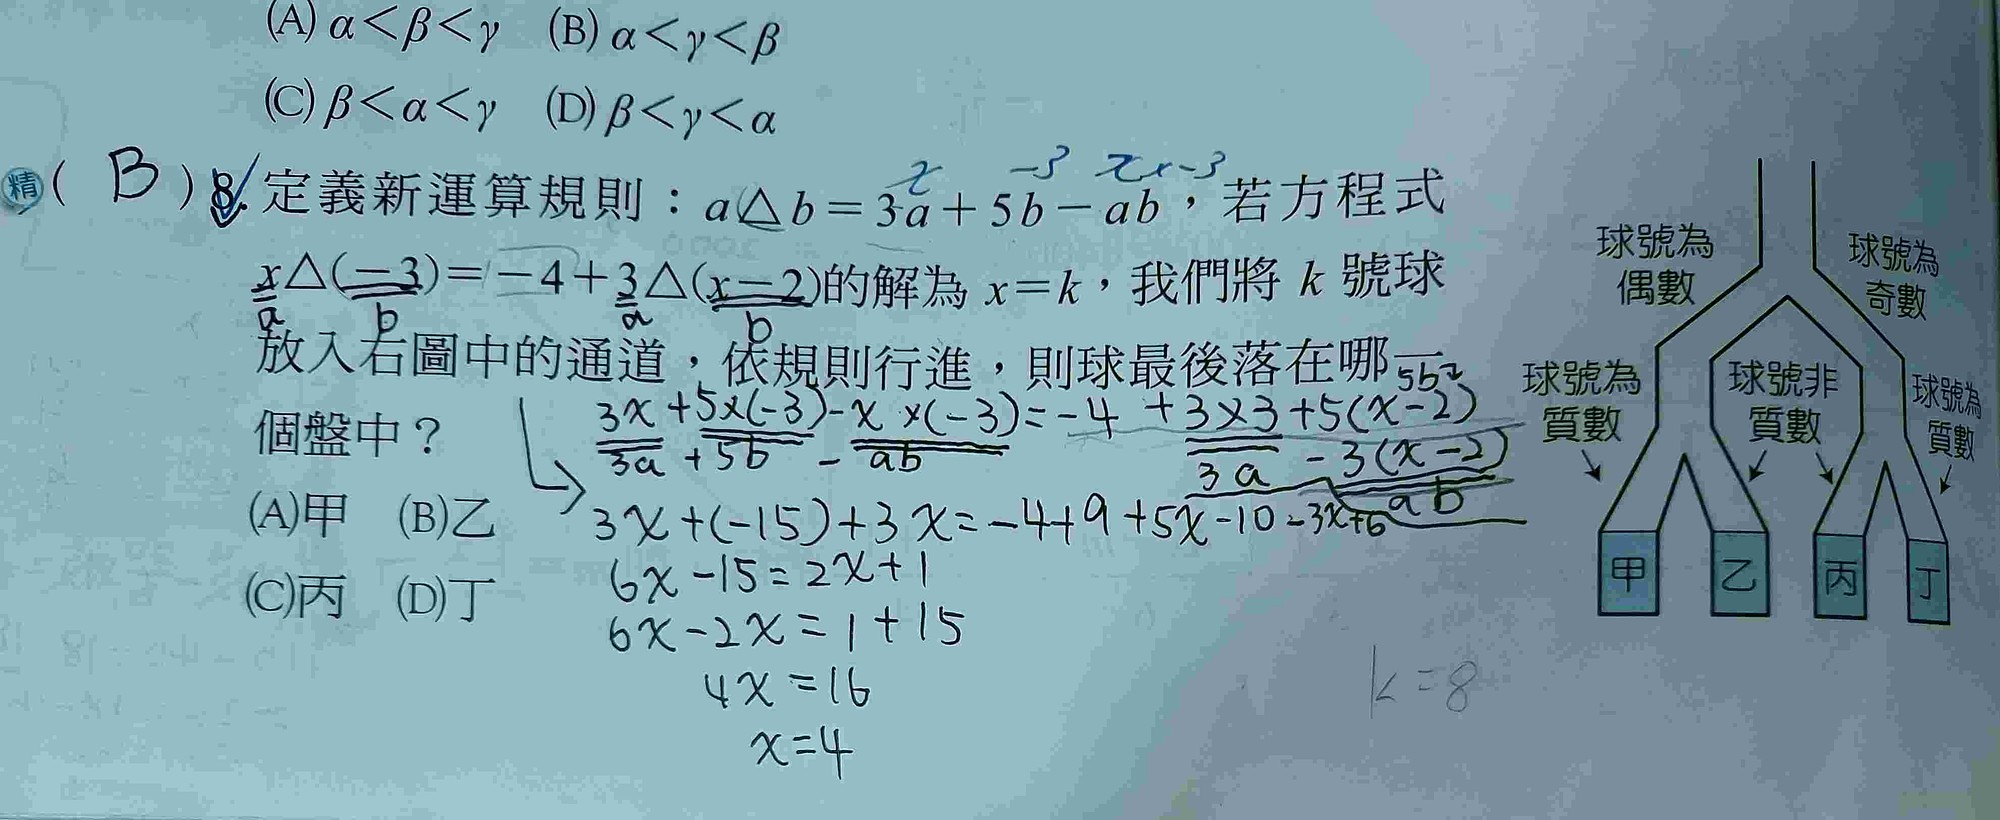 (A) α<β<γ (B) α<γ<β
(C) β<α<γ (D) β<γ<α
精 ( B ) 8. 定義新運算規則：a△b=3a+5b-ab，若方程式
x -3 x×-3
x△(-3)=-4+3△(x-2)的解為 x=k，我們將 k 號球
a b a b
放入右圖中的通道，依規則行進，則球最後落在哪一
個盤中？
(A)甲 (B)乙
(C)丙 (D)丁
5b
3x+5×(-3)-x×(-3)=-4+3×3+5(x-2)
3a+5b-ab 3a -3(x-2)
ab
3x+(-15)+3x=-4+9+5x-10-3x+6
6x-15=2x+1
6x-2x=1+15
4x=16
x=4
k=8
球號為
偶數
球號為
奇數
球號為
質數
球號非
質數
球號為
質數
甲 乙 丙 丁